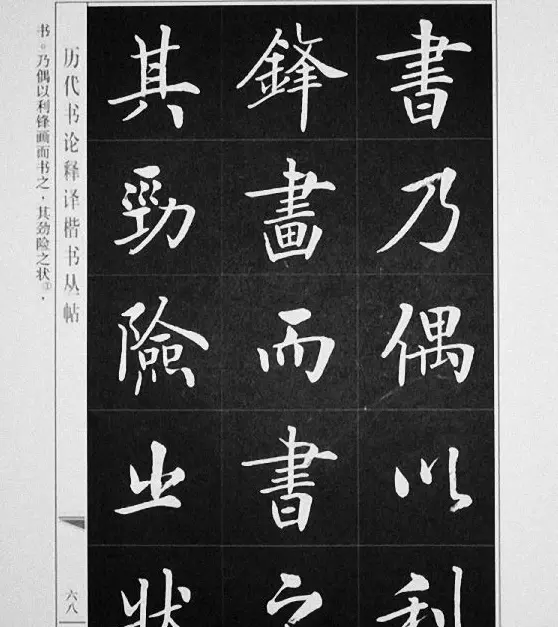 書乃偶以利
鋒畫而書之
其勁險之狀
历代书论释译楷书丛帖
六八
书。乃偶以利锋画而书之，其劲险之状①，